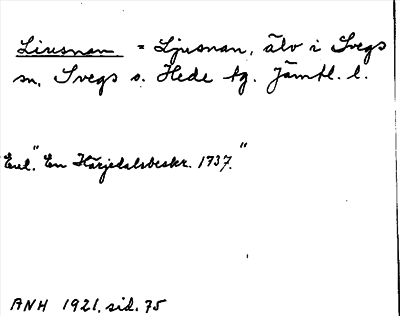 Liusnan = Ljusnan, älv i Svegs
sn, Svegs o. Hede tg. Jämtl. l.
Enl. "En Härjedalsbeskr. 1737."
ANH 1921, sid. 75